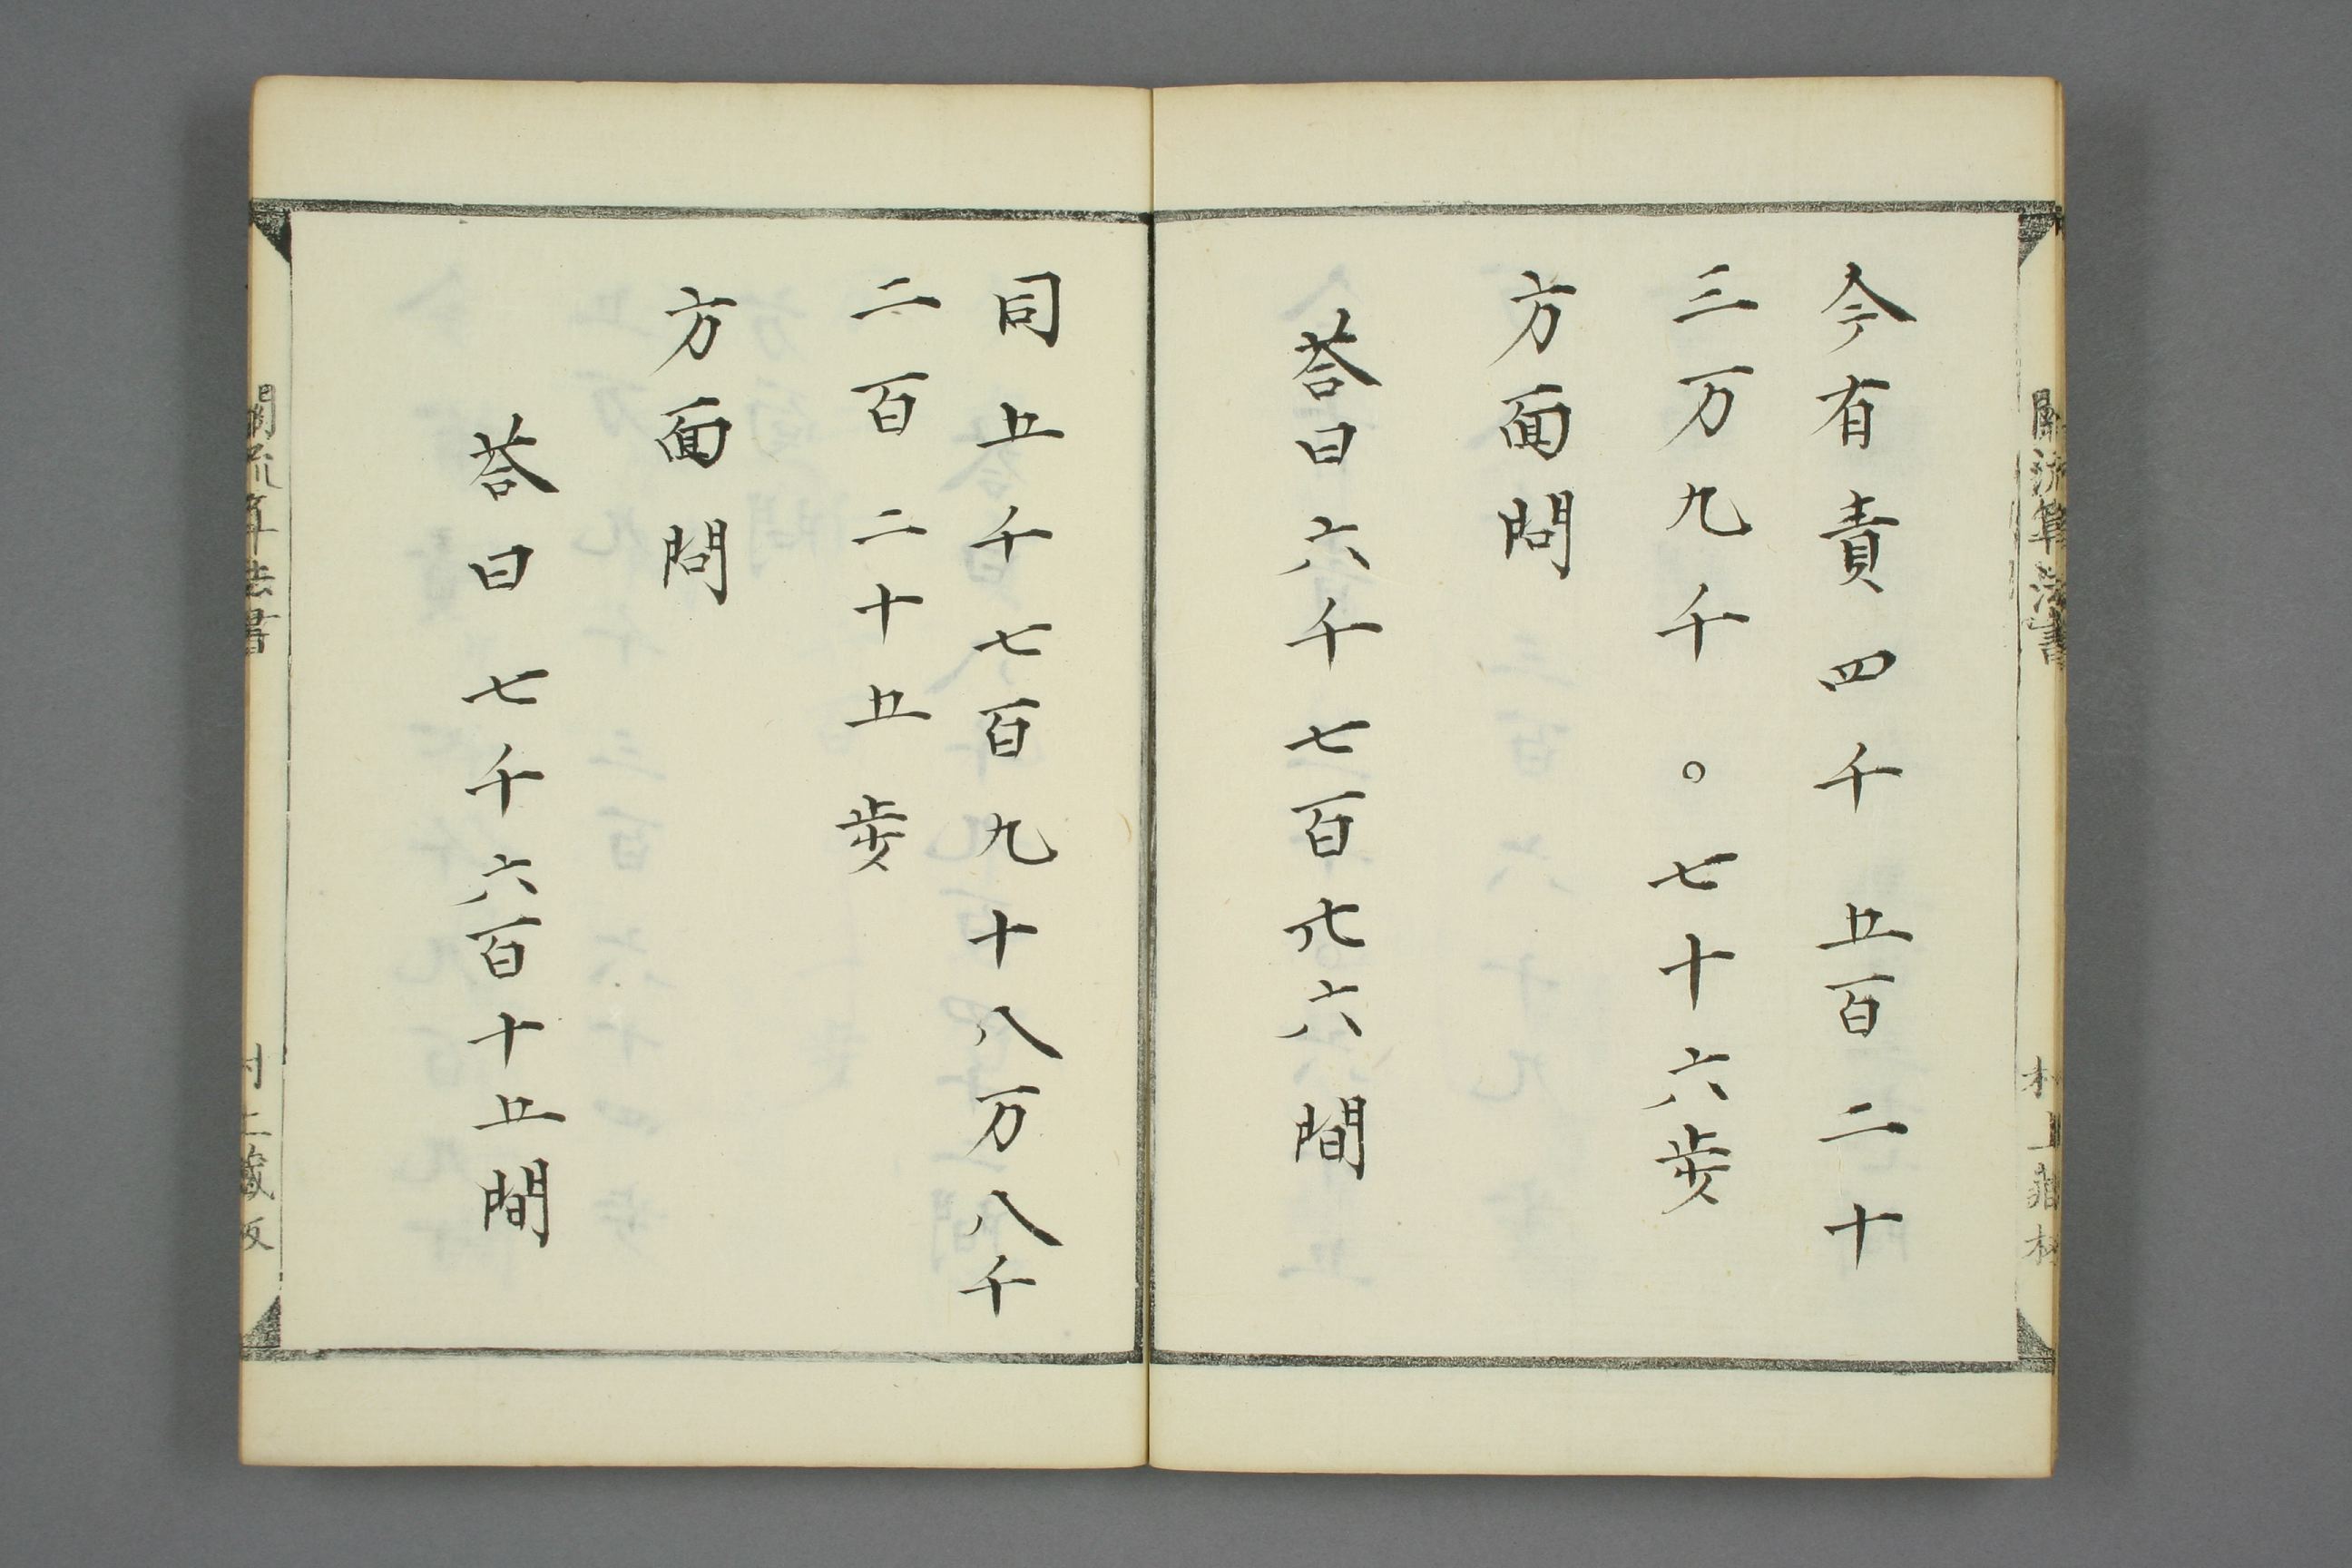 關流算法書
村上
今有責四千五百二十
三万九千〇七十六歩
方面問
荅曰六千七百廿六間
同五千七百九十八万八千
二百二十五歩
方面問
荅曰七千六百十五間
關流算法書
村上蔵板